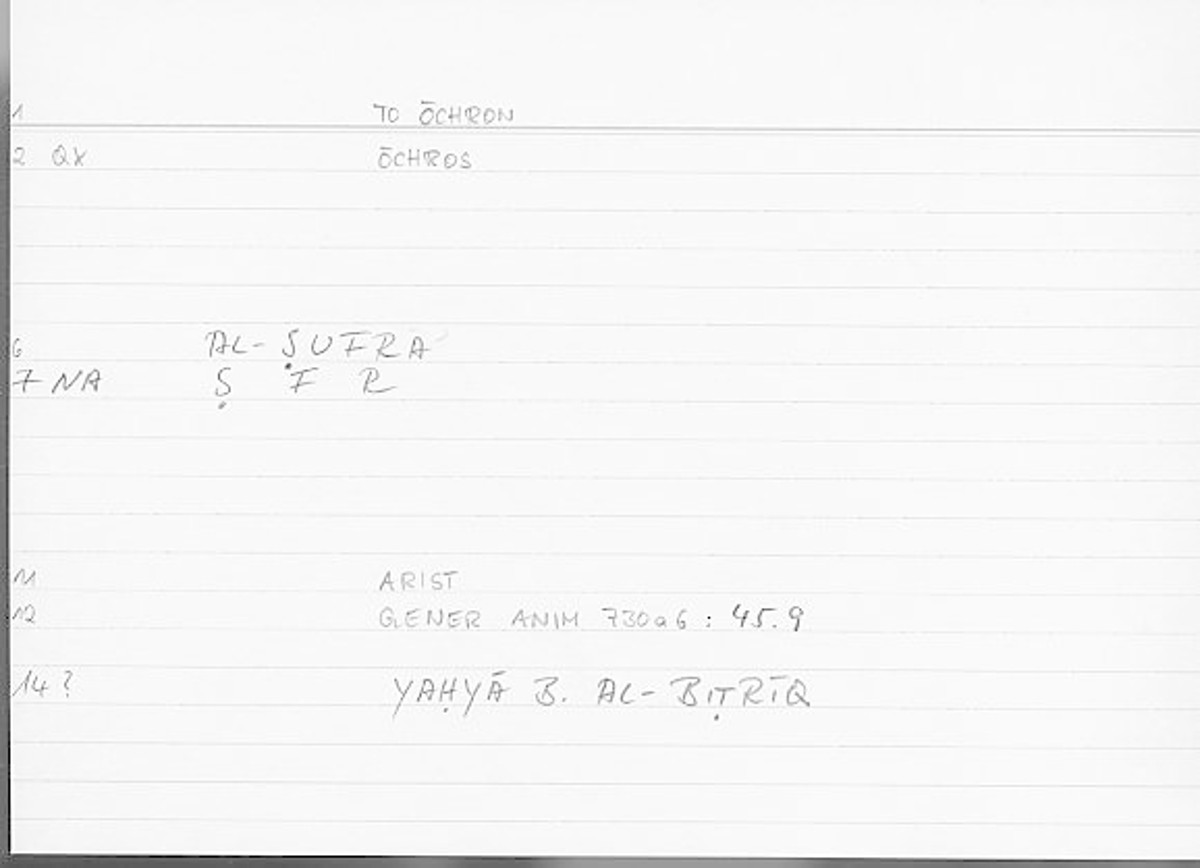 1 TO ŌCHRON
2 QX ŌCHROS
6 AL-ṢUFRA
7 NA Ṣ F R
11 ARIST
12 GENER ANIM 730a6 : 45.9
14? YAḤYĀ B. AL-BIṬRĪQ